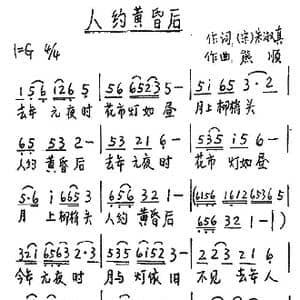 人约黄昏后
1=G 4/4
作词:(宋)朱淑真
作曲:熊顺
1 5 6 1 2 6 5 | 5 6 6 5 2 3 5 - | 5 1 6 5 3 · 2 |
去年 元夜时 花市灯如昼 月上柳梢头
6 5 5 3 2 - | 5 3 2 1 6 - | 5 3 5 i 5 6 - |
人约 黄昏后 去年 元夜时 花市 灯如昼
5 · 6 i 6 6 5 3 | 6 5 6 3 2 1 - | (6 1 5 6 1 6 1 2 6 5 3 6 5
月 上柳梢头 人约 黄昏后 6 5 6 3 2 1 - |)
3 2 1 6 5 6 3 2 · 3 | 5 3 5 6 i 5 2 3 - | 2 2 3 2 1 6
今年 元夜时 月与 灯依旧 不见 去年人